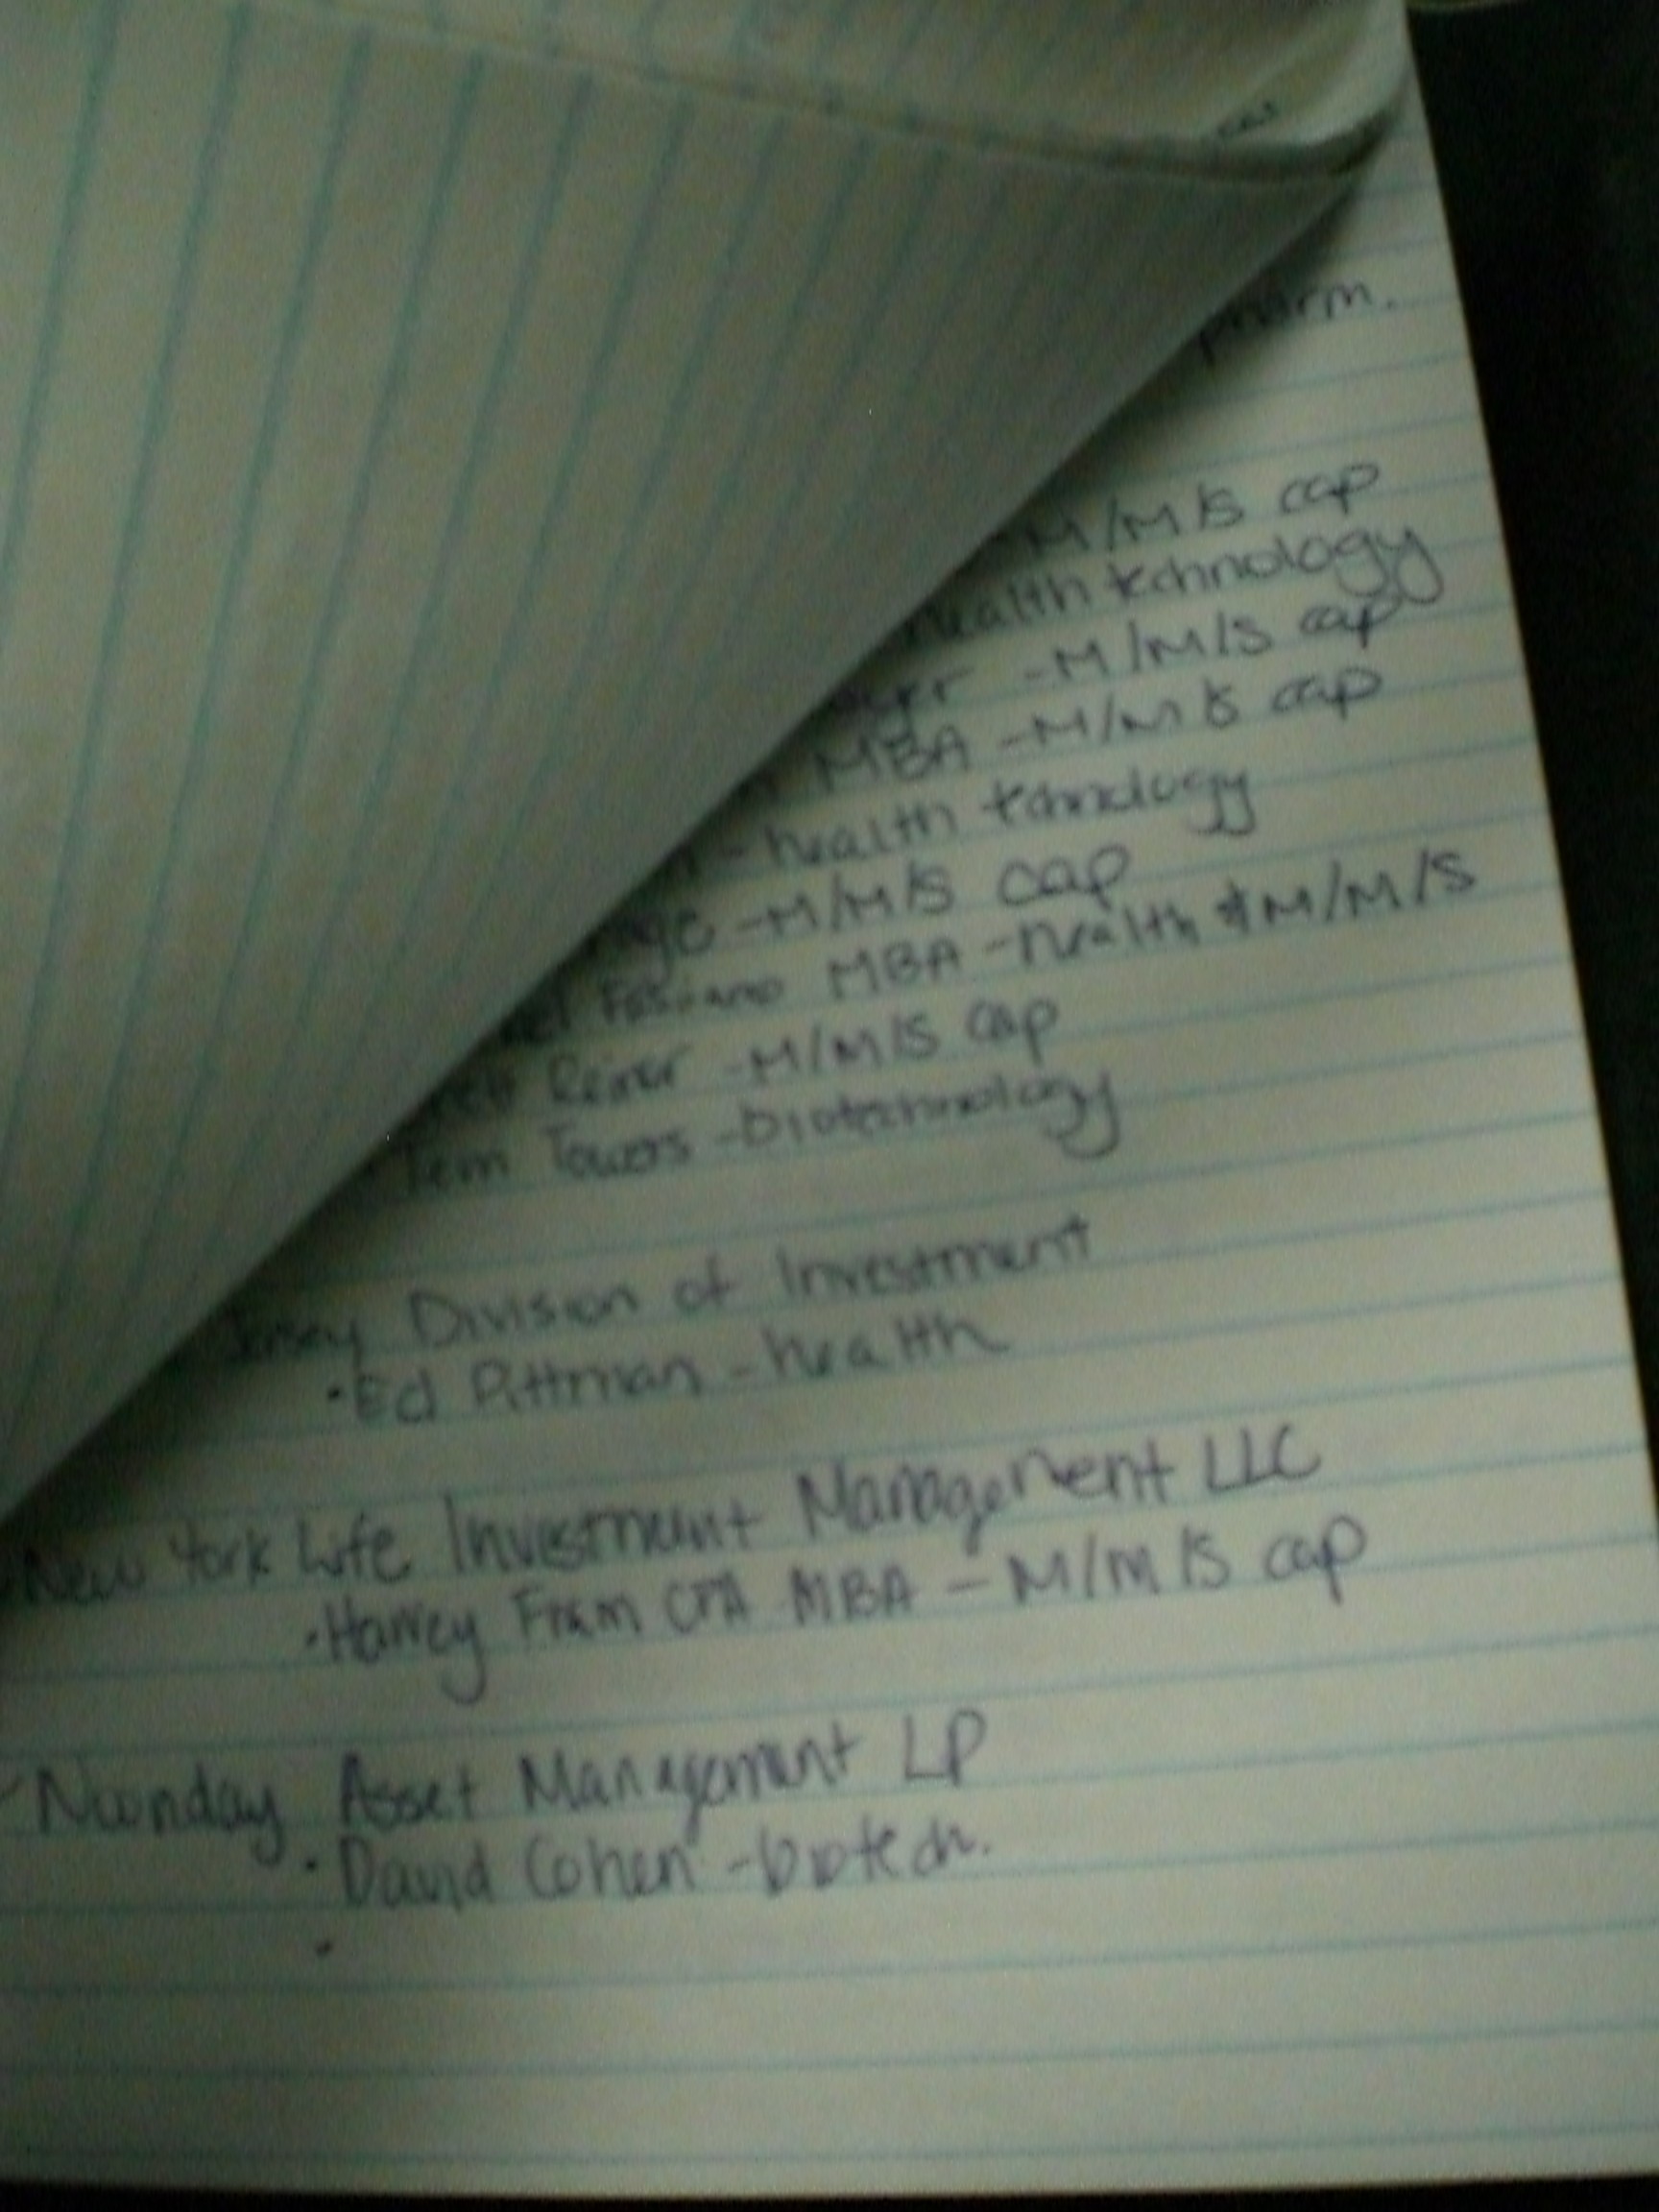 pharm.
M/M/S cap
health technology
-M/M/S cap
MBA -M/M/S cap
-health technology
-M/M/S cap
MBA -health & M/M/S
-M/M/S cap
Towers -biotechnology
Jersey Division of Investment
•Ed Pittman -health
New York Life Investment Management LLC
•Harvey Fram CFA MBA - M/M/S cap
Noonday Asset Management LP
•David Cohen -biotech.
•